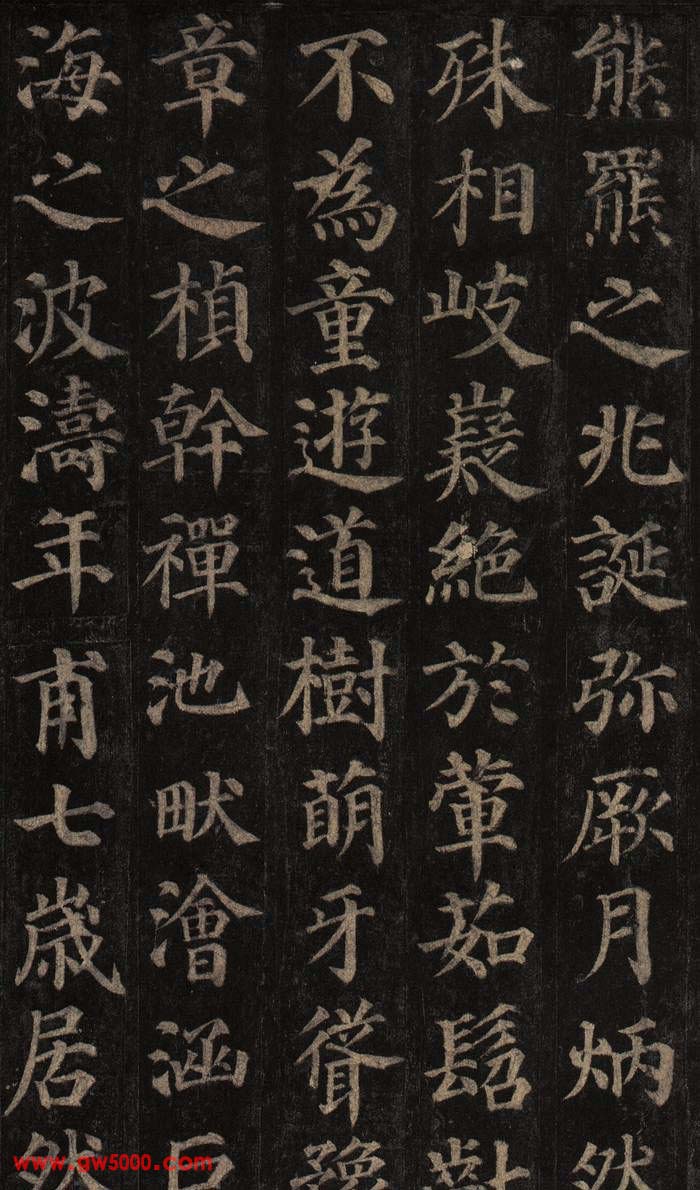 熊羆之兆誕弥厥月炳然
殊相岐嶷絶於葷茹髫齔
不為童遊道樹萌牙聳豫
章之楨幹禪池畎澮涵巨
海之波濤年甫七歲居然
www.gw5000.com